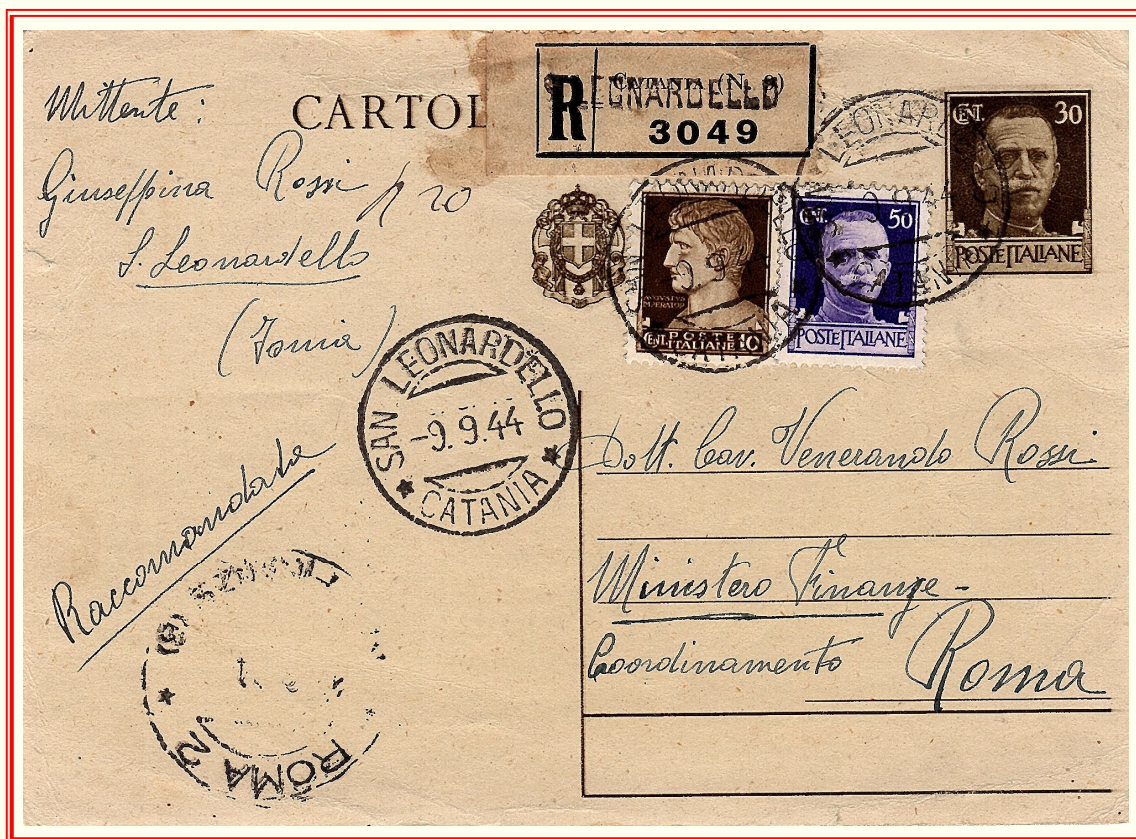 Mittente:
Giuseppina Rossi
S. Leonardello
(Jonia)
Raccomandata
CARTOL
R
CATANIA (N. 9)
LEONARDELLO
3049
CENT. 30
POSTE ITALIANE
CENT. 50
POSTE ITALIANE
AVGVSTVS
IMPERATOR
POSTE
CENT. ITALIANE 10
SAN LEONARDELLO
-9.9.44
CATANIA
Dott. Cav. Venerando Rossi
Ministero Finanze-
Coordinamento Roma
ROMA